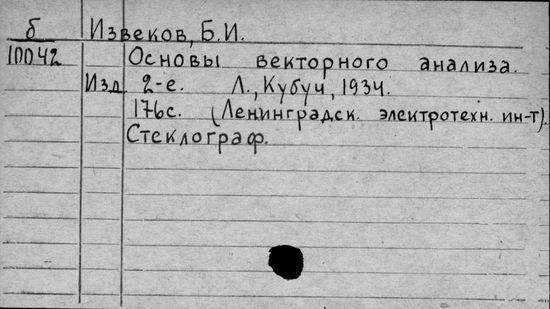 б Извеков, Б.И.
10042 Основы векторного анализа.
Изд. 2-е. Л., Кубуч, 1934.
176с. (Ленинградск. электротехн. ин-т).
Стеклограф.